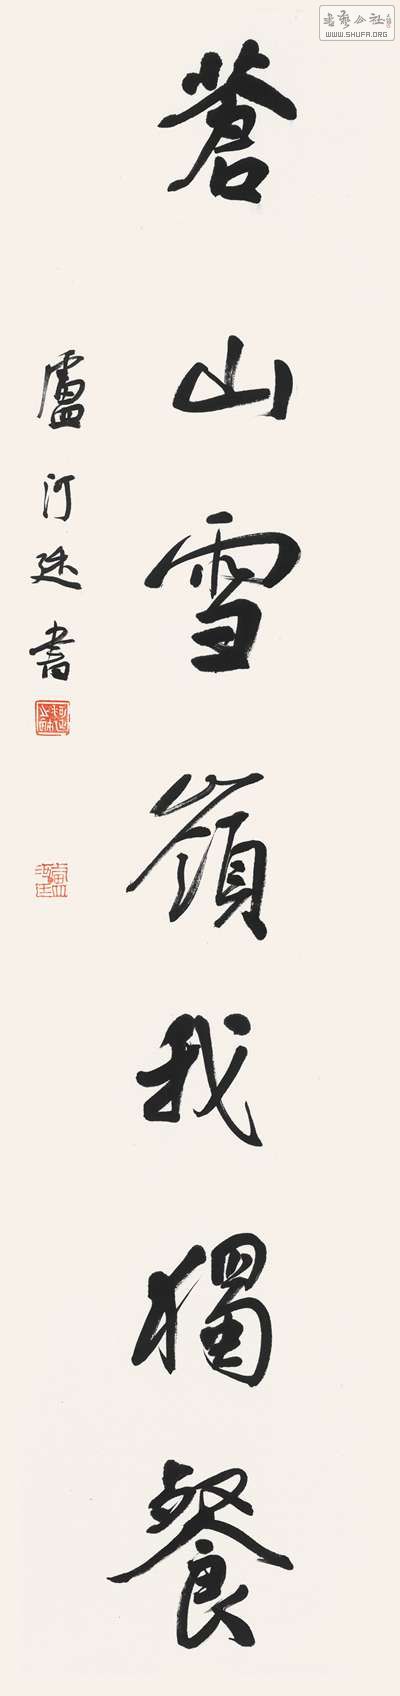 蒼山雪嶺我獨餐
盧汀廷書
书艺公社
WWW.SHUFA.ORG